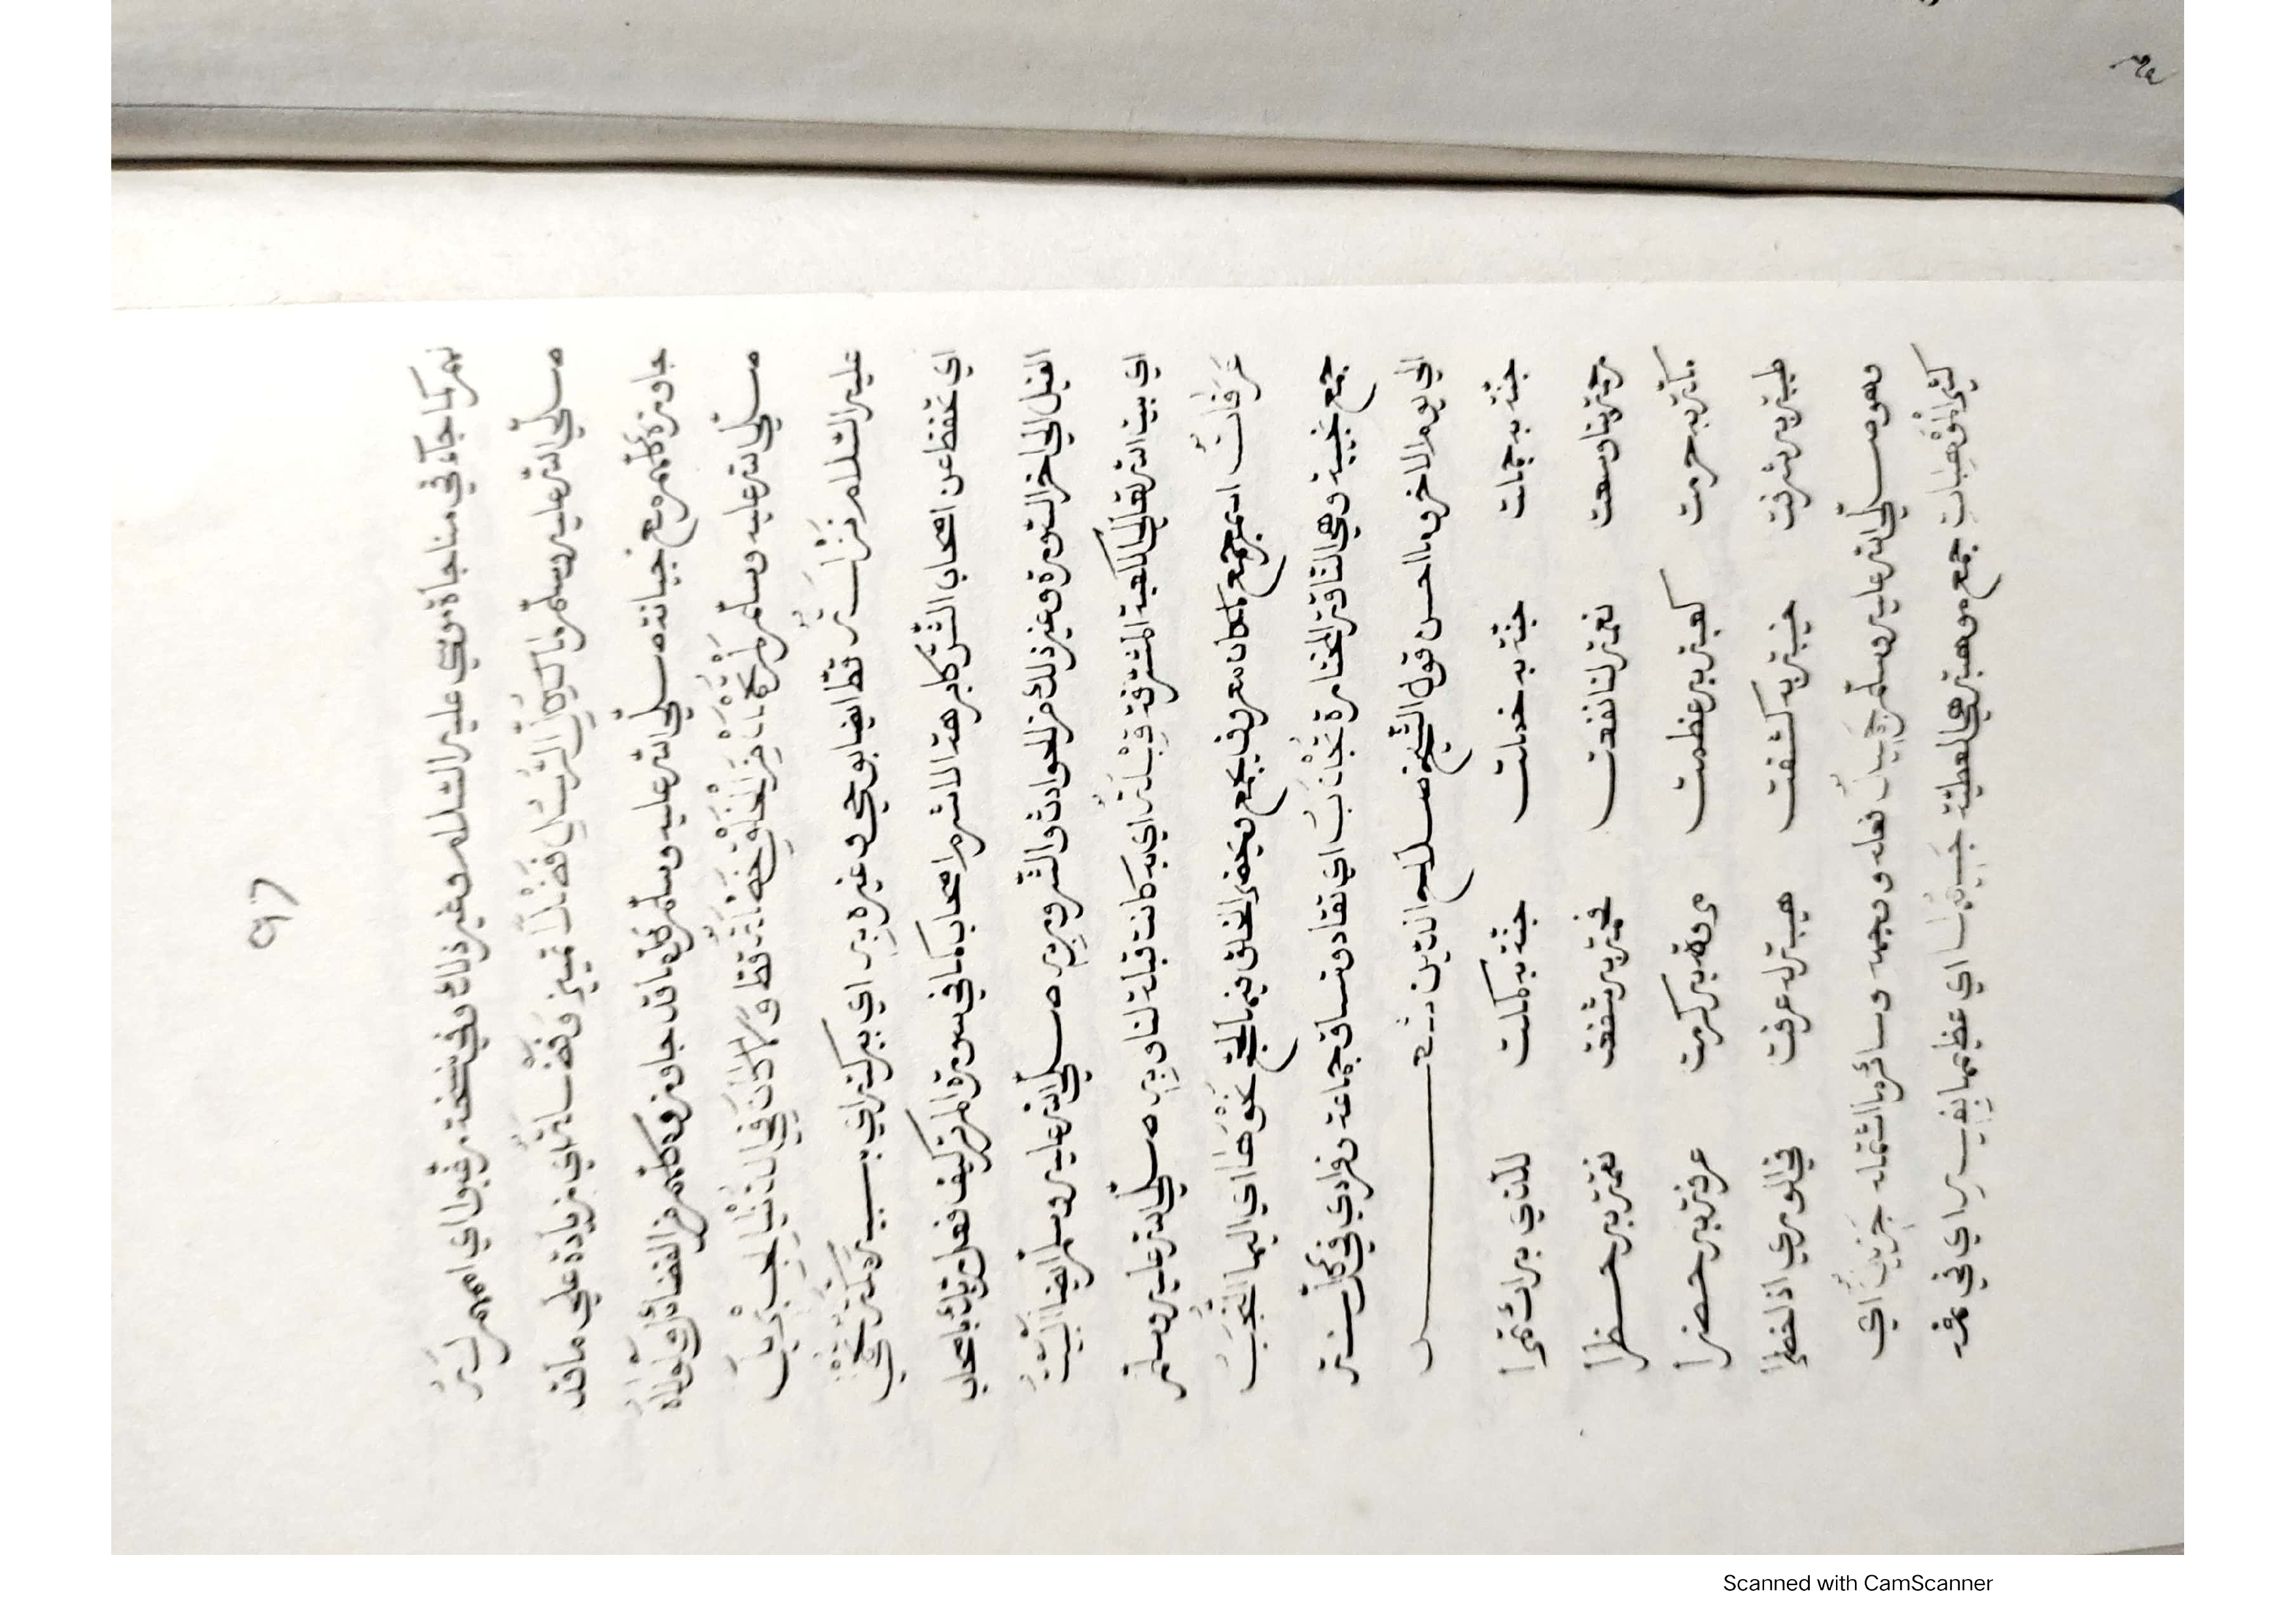 ٩٧
نعم كما جآء في مناجاة موسى عليه السّلام وغير ذلك وفي نسخة رغبوا اي امم لَهُ
صلّى الله عليه وسلّم ما كَكُلِّ الرُّسْلِ فَضْلاً تمييز وَفَضَائلُهُ اي زيادة على ما قد
جاوزه كلّهم مع خيانته صلّى الله عليه وسلّم كلّ ما قد جاوزوه كلّهم من الفضائل وَلَوْلَاهُ
صلّى الله عليه وسلّم لَمْ يَخْرُجْ مِنَ الْخَلْقِ قطّ وَلَا كَانَ فِي الدُّنْيَا لِجِبْرِيلَ
عليه السّلام نزاسَتُهُ قطّ ايضا بوحي وغيره بِهِ اي ببركته اي بسببه مَكَّةٌ تُحْمَى
اي تحفظ عن اصحاب الشّرّ كابرهة الاشرم اصحاب كما في سورة الم تر كيف فعل ربّك باصحاب
الفيل الى اخر السّورة وغير ذلك من الحوادث والشّرور بِهِ صلّى الله عليه وسلّم ايضا الْبَيْتُ
اي بيت الله تعالى الكعبة المشرّفة قِبْلَةٌ اي به كانت قبلة لنا وبِهِ صلّى الله عليه وسلّم
عَرَفَاتُ اسم جمع مكان معروف يجمع ويحضر الخلق فيه الحجّ نَحْوَهَا اي اليها النُّجُبُ
جمع نجيبة وهي النّاقة المختارة تُجْذَبُ اي تقاد وتساق جماعة وفرادى في كلّ سنة
الى يوم الاخر وما احسن قول الشّيخ صلاح الدّين شعر
جنّة به حمات جنّة به خمات جنّة به كملت للّذي براك قمرا
رحمة بنا وسعت نعمة لنا نفعت غمّة به شفعت نقمة به حظرا
مكّة به حرمت كعبة به عظمت مروة به كرمت عرفة به حضرا
طيبة به شرفت خيبة به كشفت هيبة له عرفت في الورى اذا خطرا
وهو صلّى الله عليه وسلّم جَمِيلٌ فعله ووجهه وسائر ما اشتمله جَزِيلٌ اي
كثير الْمَوْهِبَاتِ جمع موهبة هي العطيّة جَسِيمُهَا اي عظيمها بِغَيْبِهِ اي في غد